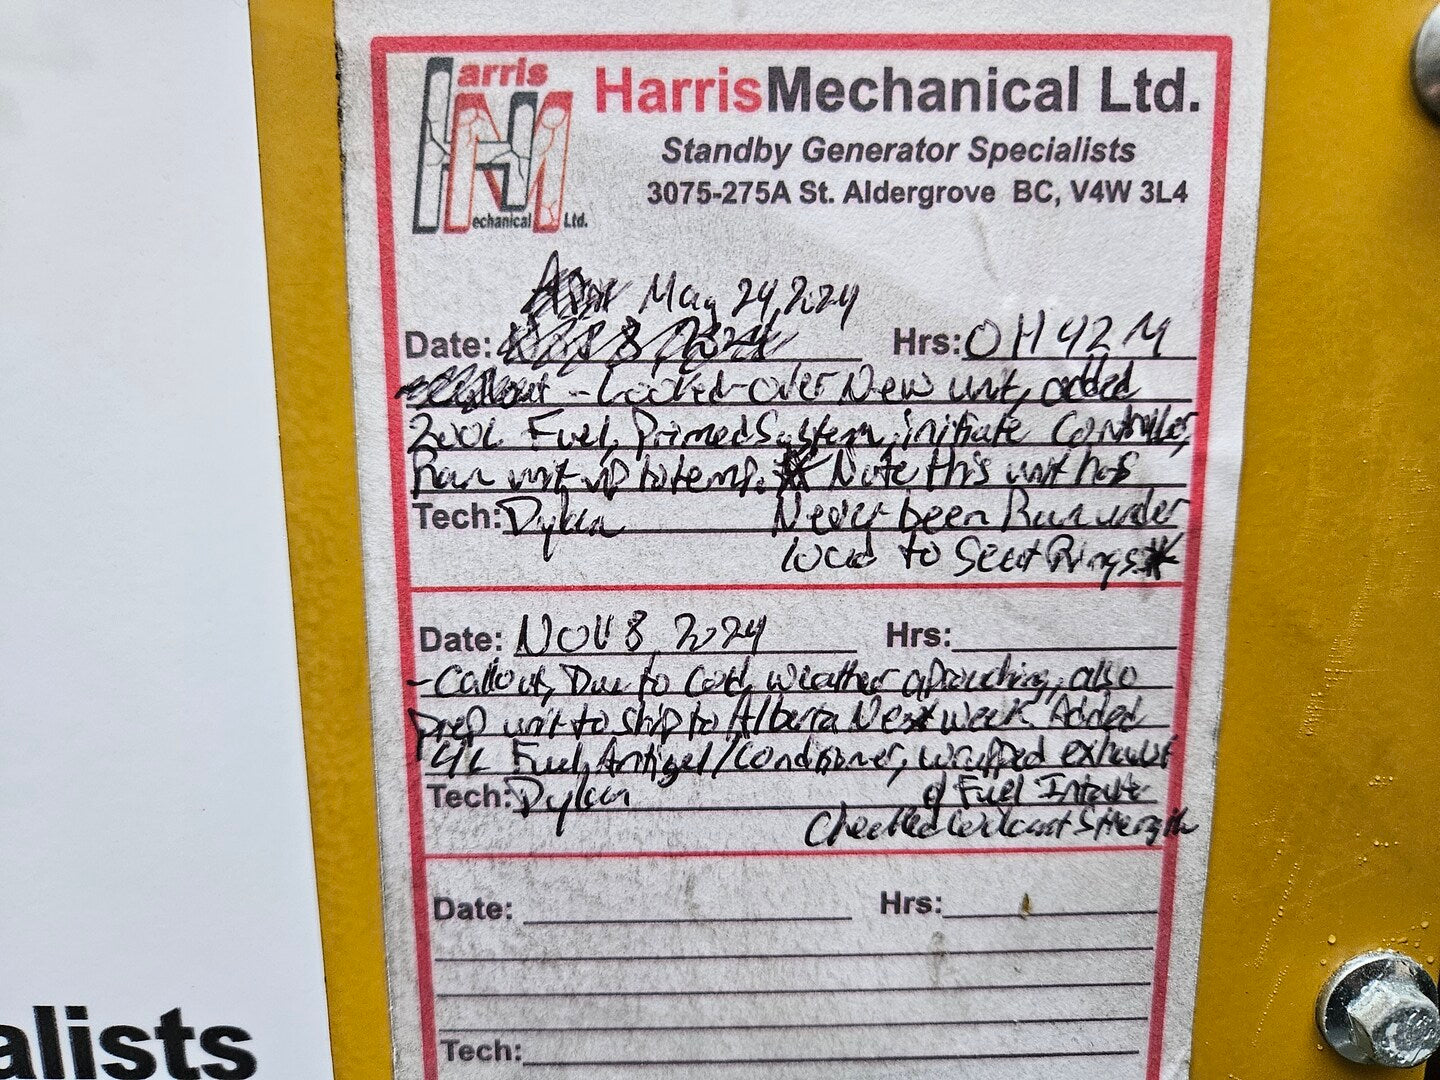 Harris
Mechanical Ltd.
HarrisMechanical Ltd.
Standby Generator Specialists
3075-275A St. Aldergrove BC, V4W 3L4
May 24, 2024
Date: Hrs: 0H 42M
- Looked over New unit, added
200L Fuel, Primed System, initiate Controller,
Ran unit up to temp. * Note this unit has
Tech: Dylan Never been Run under
load to Seat Rings*
Date: NOV 8, 2024 Hrs:
- Callout, Due to Cold weather aprouching, also
prep unit to ship to Alberta Next week. Added
4L Fuel Antigel/Conditioner, wrapped exhaust
Tech: Dylan & Fuel Intake
Checked Coolant Strength
Date: Hrs:
Tech:
alists